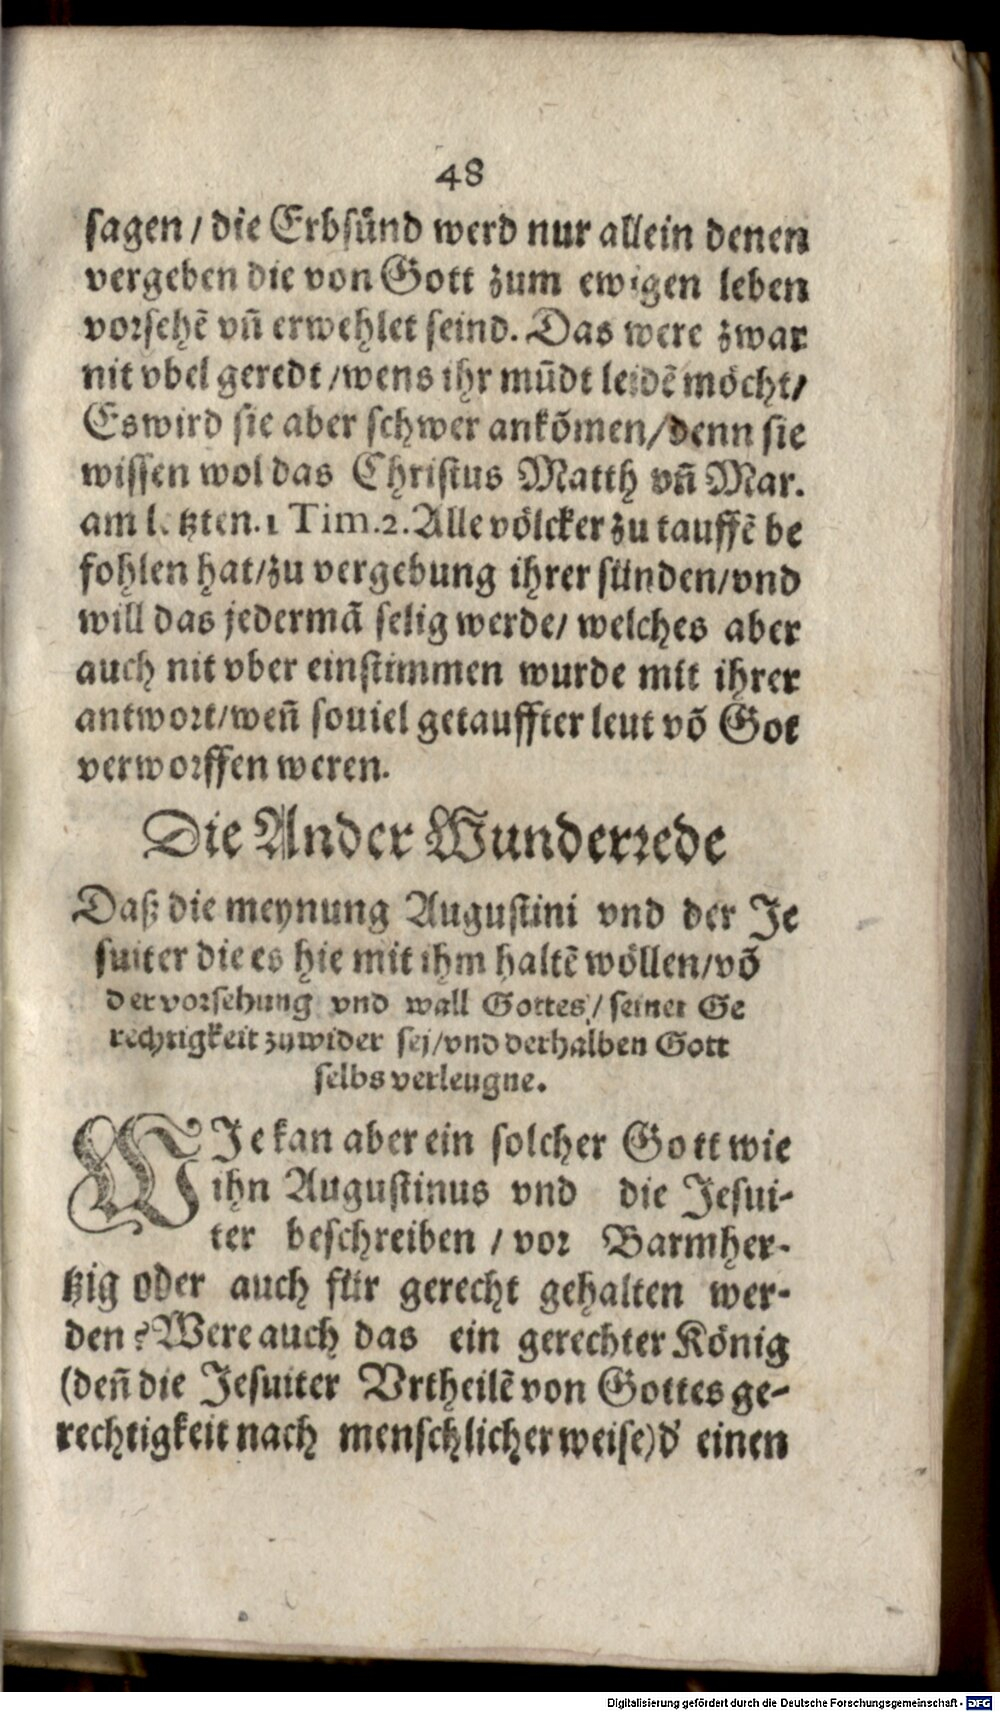 48
sagen / die Erbsünd werd nur allein denen
vergeben die von Gott zum ewigen leben
vorsehẽ vñ erwehlet seind. Das were zwar
nit vbel geredt /wens ihr mũdt leidẽ möcht/
Es wird sie aber schwer ankõmen/denn sie
wissen wol das Christus Matth vñ Mar.
am letzten. 1 Tim. 2. Alle völcker zu tauffẽ be
fohlen hat/zu vergebung ihrer sünden/vnd
will das jedermã selig werde/ welches aber
auch nit vber einstimmen wurde mit ihrer
antwort/weñ souiel getauffter leut võ Got
verworffen weren.
Die Ander Wunderrede
Daß die meynung Augustini vnd der Je
suiter die es hie mit ihm haltẽ wöllen/võ
der vorsehung vnd wall Gottes / seiner Ge
rechtigkeit zuwider sej/vnd derhalben Gott
selbs verleugne.
WJe kan aber ein solcher Gott wie
ihn Augustinus vnd die Jesui-
ter beschreiben / vor Barmher-
tzig oder auch für gerecht gehalten wer-
den? Were auch das ein gerechter König
(deñ die Jesuiter Vrtheilẽ von Gottes ge-
rechtigkeit nach menschlicher weise) d' einen
Digitalisierung gefördert durch die Deutsche Forschungsgemeinschaft - DFG